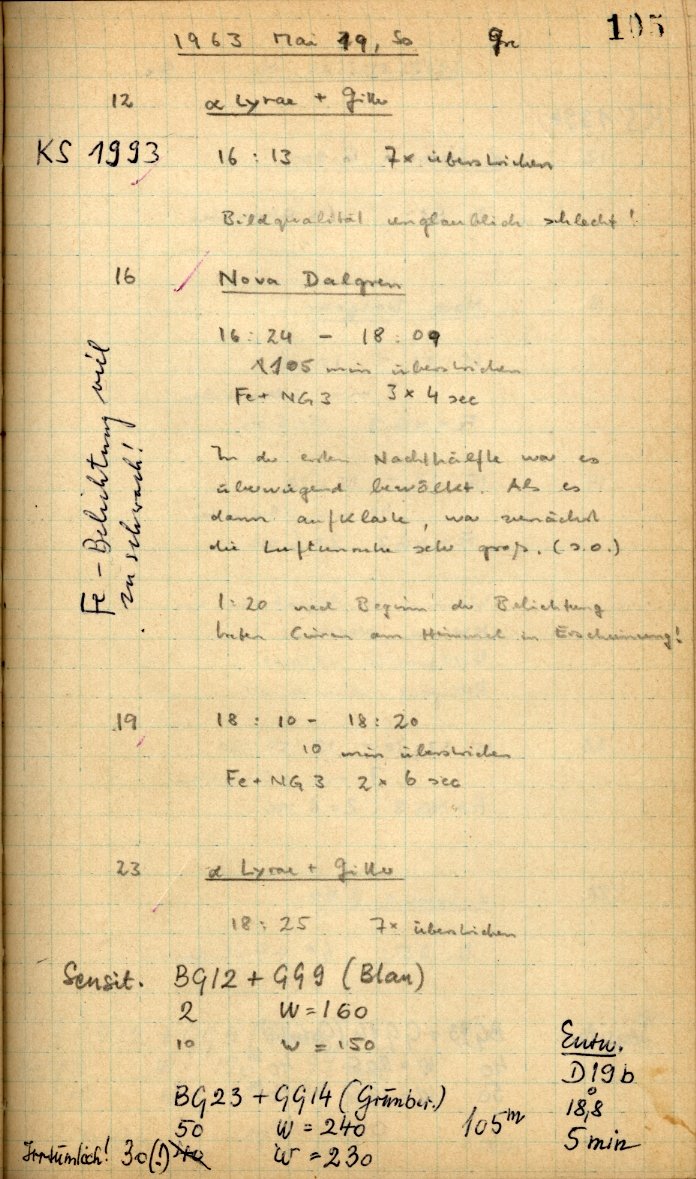 105
1963 Mai 19, So
12 α Lyrae + Gitter
KS 1993 16 : 13 7× überstrichen
Bildqualität unglaublich schlecht!
16 Nova Dalgren
16 : 24 – 18 : 09
105 min überstrichen
Fe + NG 3 3 × 4 sec
Fe – Belichtung viel
zu schwach!
In der ersten Nachthälfte war es
überwiegend bewölkt. Als es
dann aufklarte, war zunächst
die Luftunruhe sehr groß. (s.o.)
1:20 nach Beginn der Belichtung
traten Cirren am Himmel in Erscheinung!
19 18 : 10 – 18 : 20
10 min überstrichen
Fe + NG 3 2 × 6 sec
23 α Lyrae + Gitter
18 : 25 7× überstrichen
Sensit. BG12 + GG9 (Blau)
2 W = 160
10 W = 150
BG23 + GG14 (Grünber.)
50 W = 240
Irrtümlich! 30(!) W = 230
105ᵐ
Entw.
D19b
18°,8
5 min